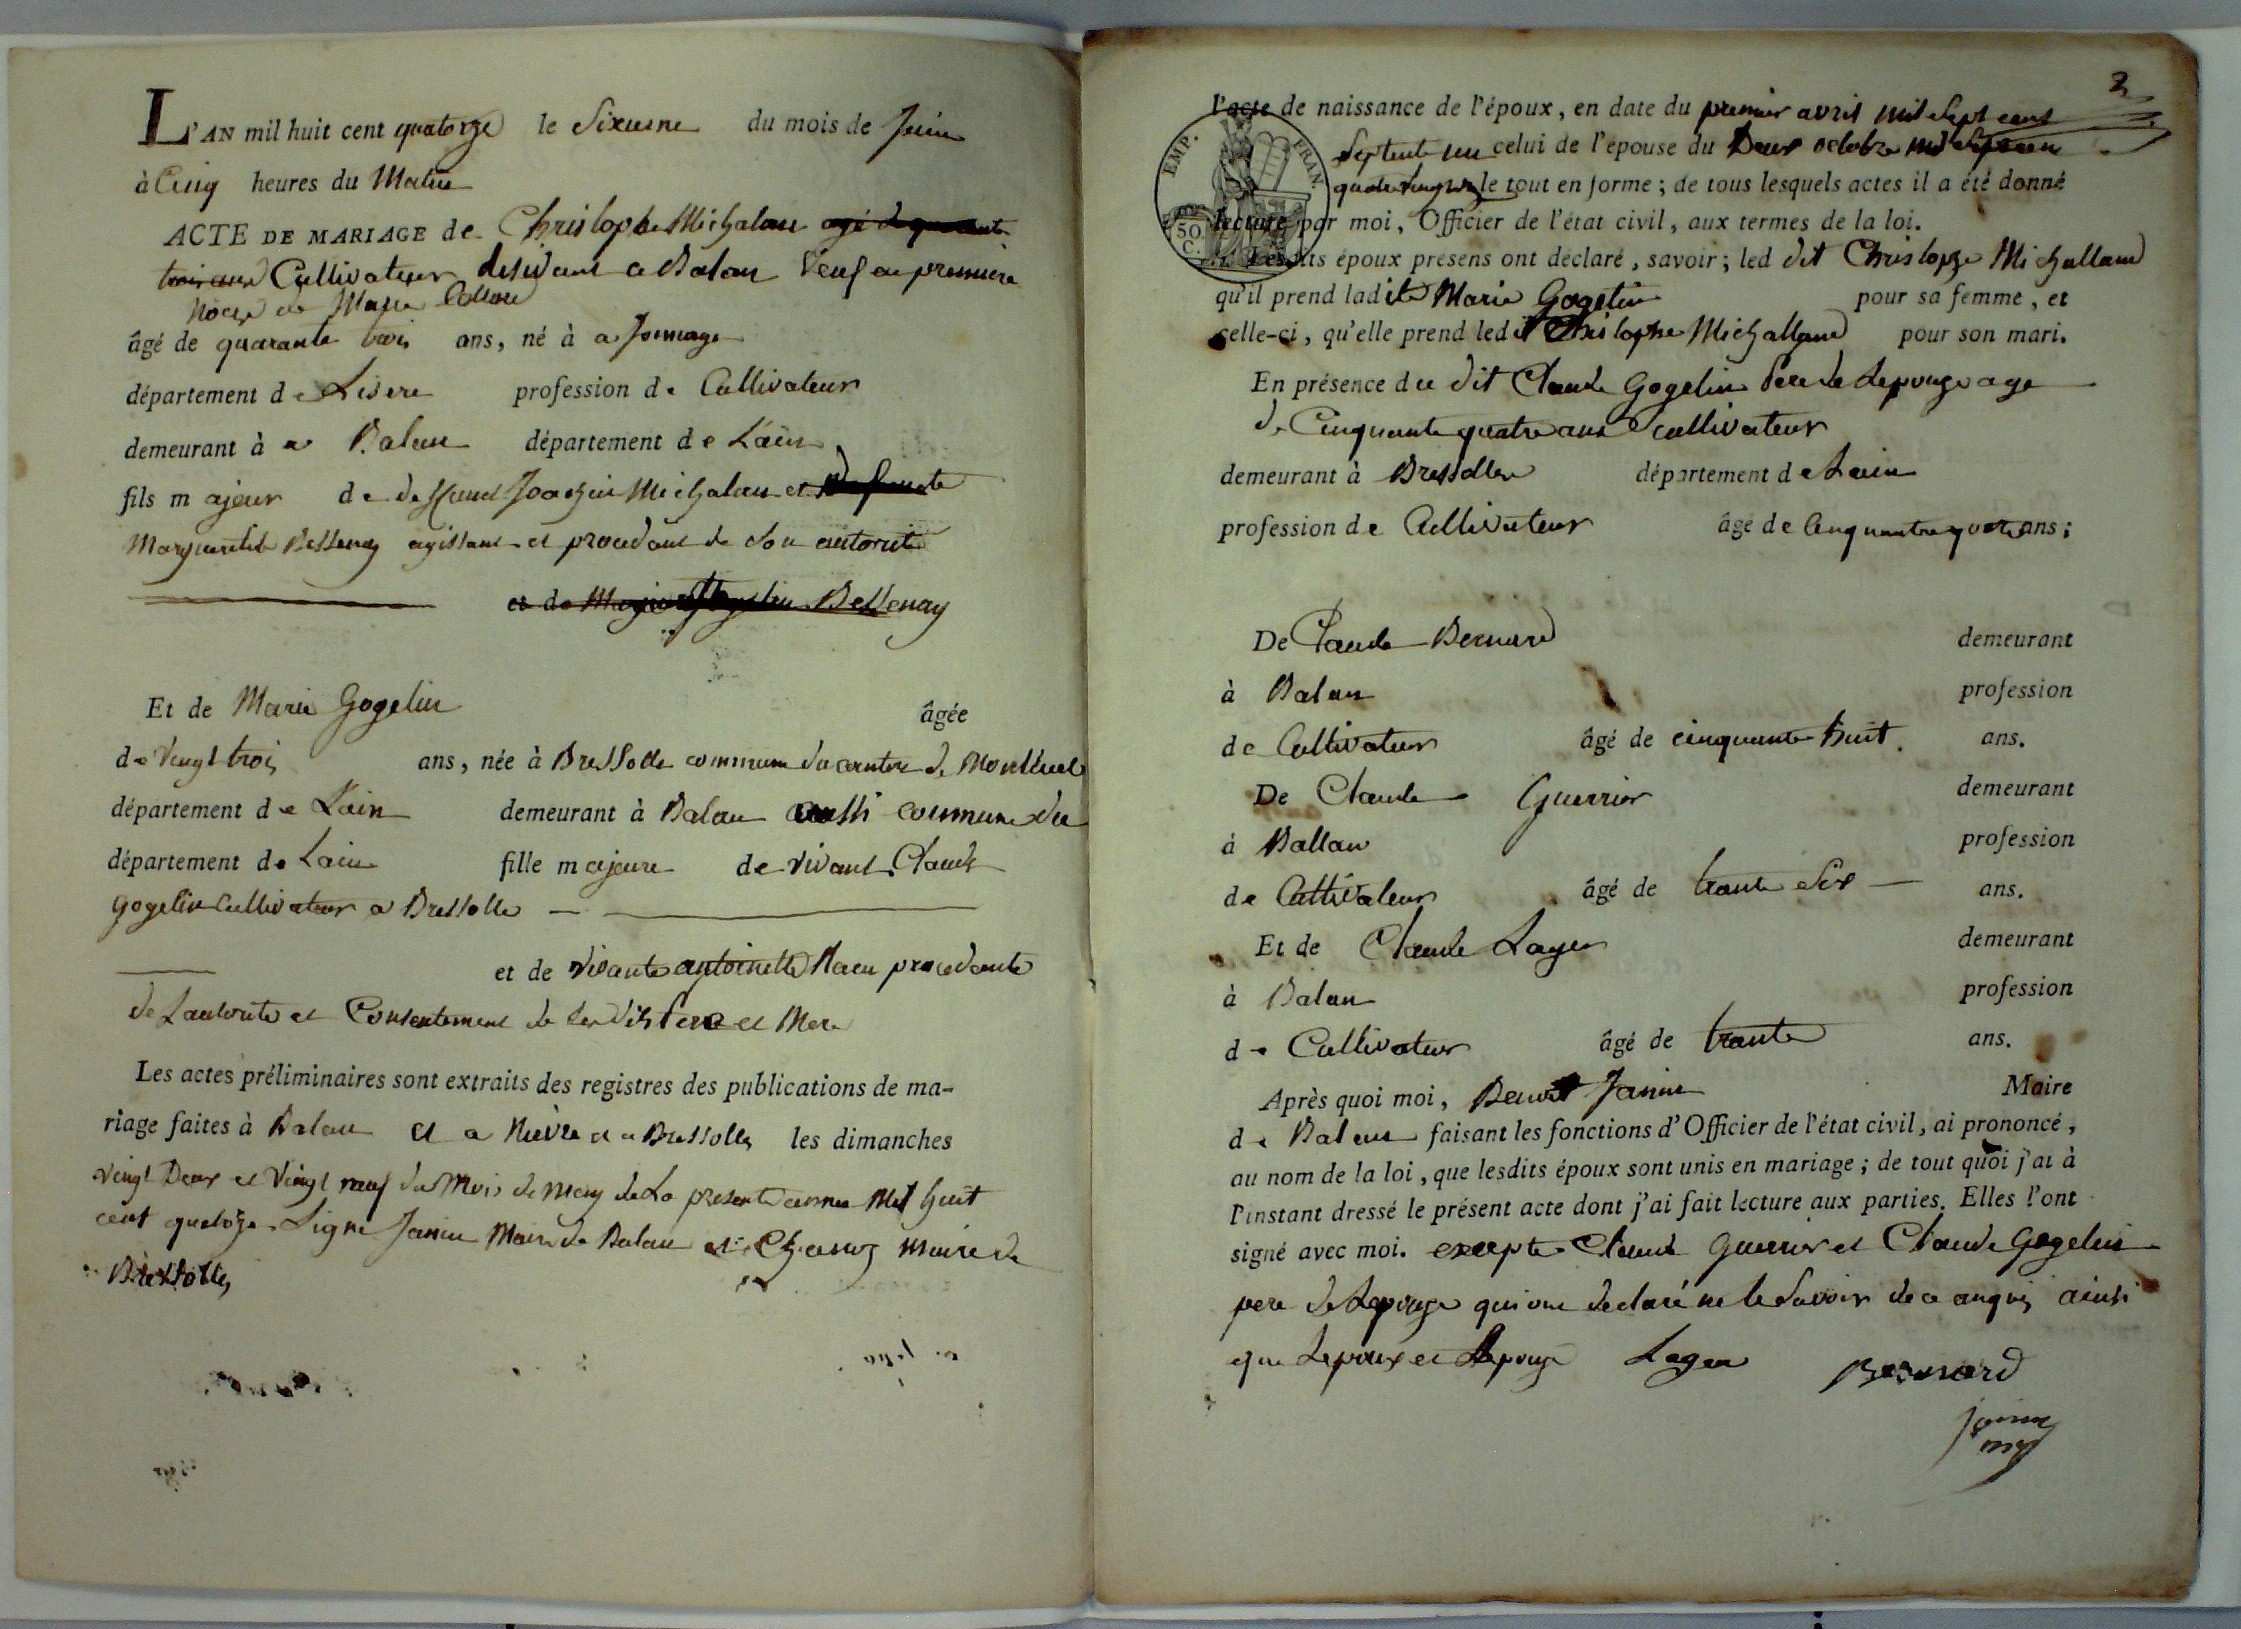 L'AN mil huit cent quatorze le Sixiesme du mois de Juin
à Cinq heures du Matin
ACTE DE MARIAGE de Christophe Michalan agé de quarante
trois ans Cultivateur residant a Balan Veuf en premiere
Noce de Marie
âgé de quarante trois ans, né à a Jonnage
département de Lisere profession de Cultivateur
demeurant à a Balan département de L'ain
fils majeur de deffunt Joachin Michalan et Defunte
Marguerite Bessenay agissant et procedant de son autorité
et de Bessenay
Et de Marie Gogelin âgée
de Vingt trois ans, née à Bressolle commune du canton de Montluel
département de L'ain demeurant à Balan aussi commune du
département de Lain fille majeure de vivant Claude
Gogelin Cultivateur a Bressolle
et de vivante antoinette procedante
de Lautorité et Consentement de ses dits Pere et Mere
Les actes préliminaires sont extraits des registres des publications de ma-
riage faites à Balan et a Nièvre et a Bressolles les dimanches
vingt Deux et Vingt neuf du Mois de may de La presente année Mil huit
cent quatorze Signé Janin Maire de Balan et maire de
Bressolles
3
l'acte de naissance de l'époux, en date du premier avril mil sept cent
EMP. FRAN.
septente un celui de l'épouse du Deux octobre mil sept cent
quatre vingt onze le tout en forme ; de tous lesquels actes il a été donné
lecture par moi, Officier de l'état civil, aux termes de la loi.
50 C.
Lesdits époux présens ont déclaré, savoir ; led dit Christophe Michalland
qu'il prend ladite Marie Gogelin pour sa femme, et
celle-ci, qu'elle prend ledit Christophe Michalland pour son mari.
En présence du dit Claude Gogelin Pere de Lepouze age
de Cinquante quatre ans cultivateur
demeurant à Bressolles département de Lain
profession de Cultivateur âgé de Cinquante quatre ans ;
De Claude Bernard demeurant
à Balan profession
de Cultivateur âgé de cinquante huit. ans.
De Claude Guerrier demeurant
à Ballan profession
de Cultivateur âgé de trante Six ans.
Et de Claude Lager demeurant
à Balan profession
de Cultivateur âgé de trante ans.
Après quoi moi, Benoit Janin Maire
de Balan faisant les fonctions d'Officier de l'état civil, ai prononcé,
au nom de la loi, que lesdits époux sont unis en mariage ; de tout quoi j'ai à
l'instant dressé le présent acte dont j'ai fait lecture aux parties. Elles l'ont
signé avec moi. excepté Claude Guerrier et Claude Gogelin
pere de Lepouze qui ont declaré ne le Savoir de ce enquis ainsi
que Lepoux et Lepouze Lager Bernard
Janin